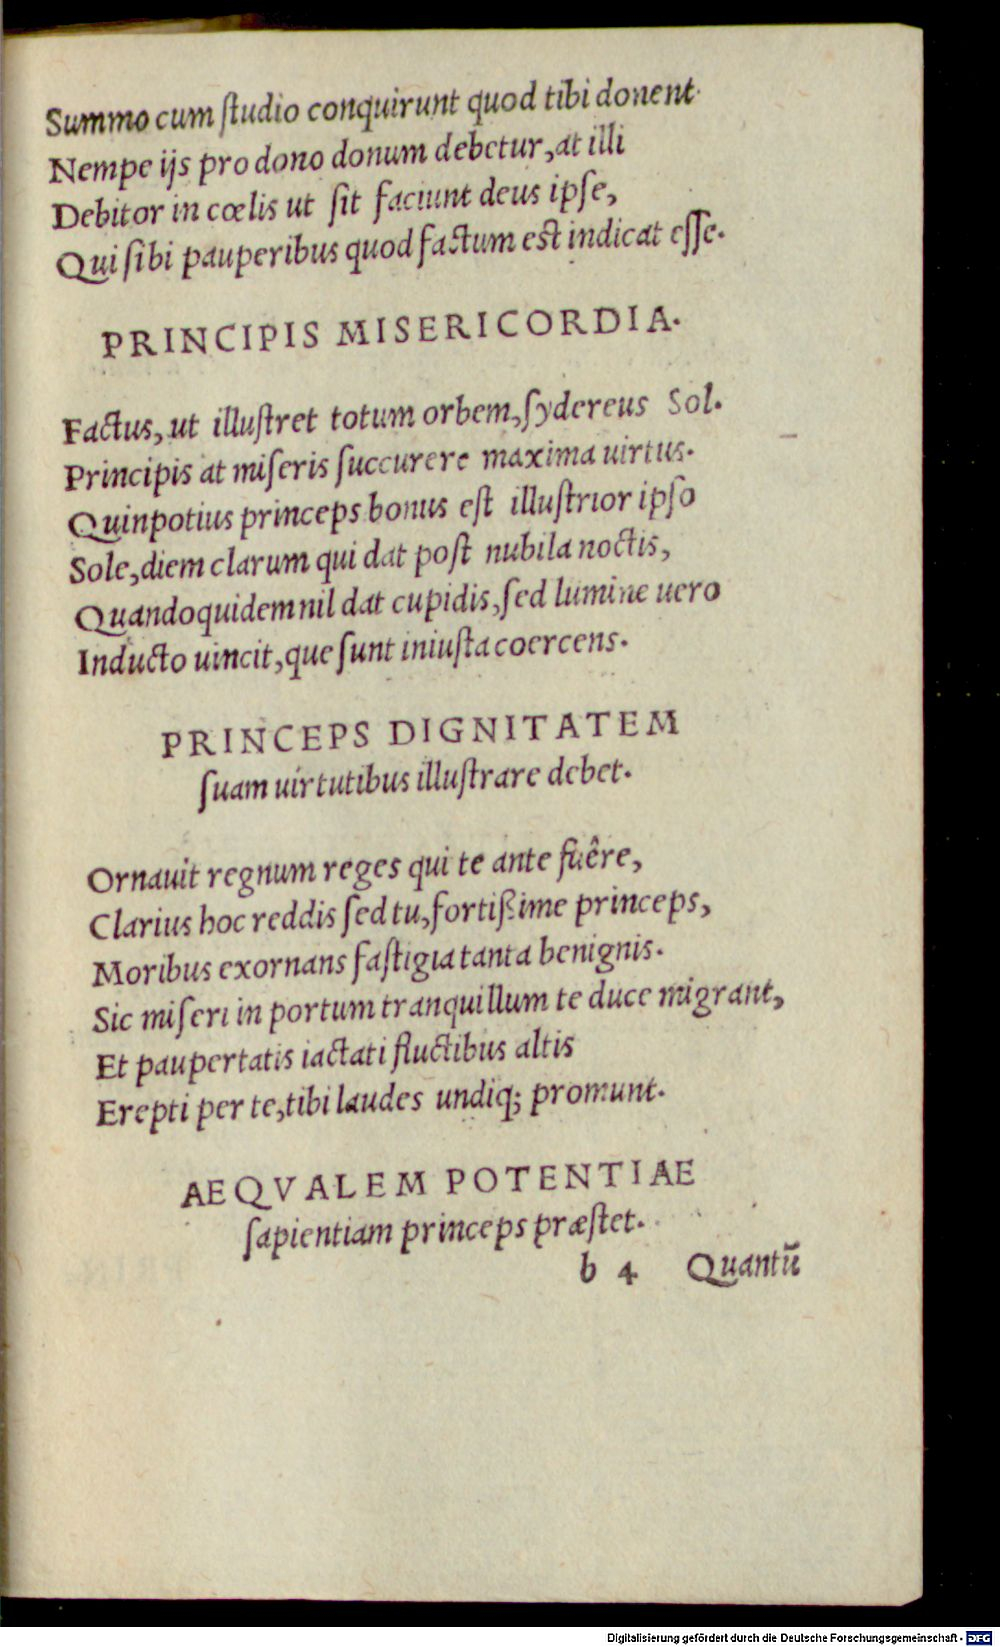 Summo cum ſtudio conquirunt quod tibi donent.
Nempe ijs pro dono donum debetur, at illi
Debitor in cœlis ut ſit faciunt deus ipſe,
Qui ſibi pauperibus quod factum eſt indicat eſſe.
PRINCIPIS MISERICORDIA.
Factus, ut illuſtret totum orbem, ſydereus Sol.
Principis at miſeris ſuccurere maxima uirtus.
Quinpotius princeps bonus eſt illuſtrior ipſo
Sole, diem clarum qui dat poſt nubila noctis,
Quandoquidem nil dat cupidis, ſed lumine uero
Inducto uincit, que ſunt iniuſta coercens.
PRINCEPS DIGNITATEM
ſuam uirtutibus illuſtrare debet.
Ornauit regnum reges qui te ante fuêre,
Clarius hoc reddis ſed tu, fortißime princeps,
Moribus exornans faſtigia tanta benignis.
Sic miſeri in portum tranquillum te duce migrant,
Et paupertatis iactati fluctibus altis
Erepti per te, tibi laudes undiq; promunt.
AEQVALEM POTENTIAE
ſapientiam princeps præſtet.
b 4 Quantū
Digitalisierung gefördert durch die Deutsche Forschungsgemeinschaft - DFG